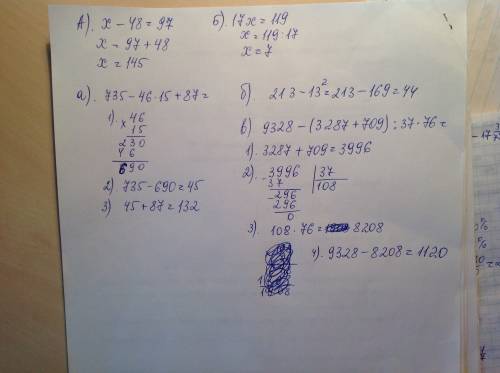 А). x − 48 = 97
x = 97 + 48
x = 145
Б). 17x = 119
x = 119 · 17
x = 7
а). 735 − 46 · 15 + 87 =
1) × 46
15
230
46
690
2) 735 − 690 = 45
3) 45 + 87 = 132
б). 213 − 13² = 213 − 169 = 44
в) 9328 − (3287 + 709) : 37 · 76 =
1). 3287 + 709 = 3996
2). −3996 | 37
37 108
−296
296
0
3). 108 · 76 = 8208
4). 9328 − 8208 = 1120